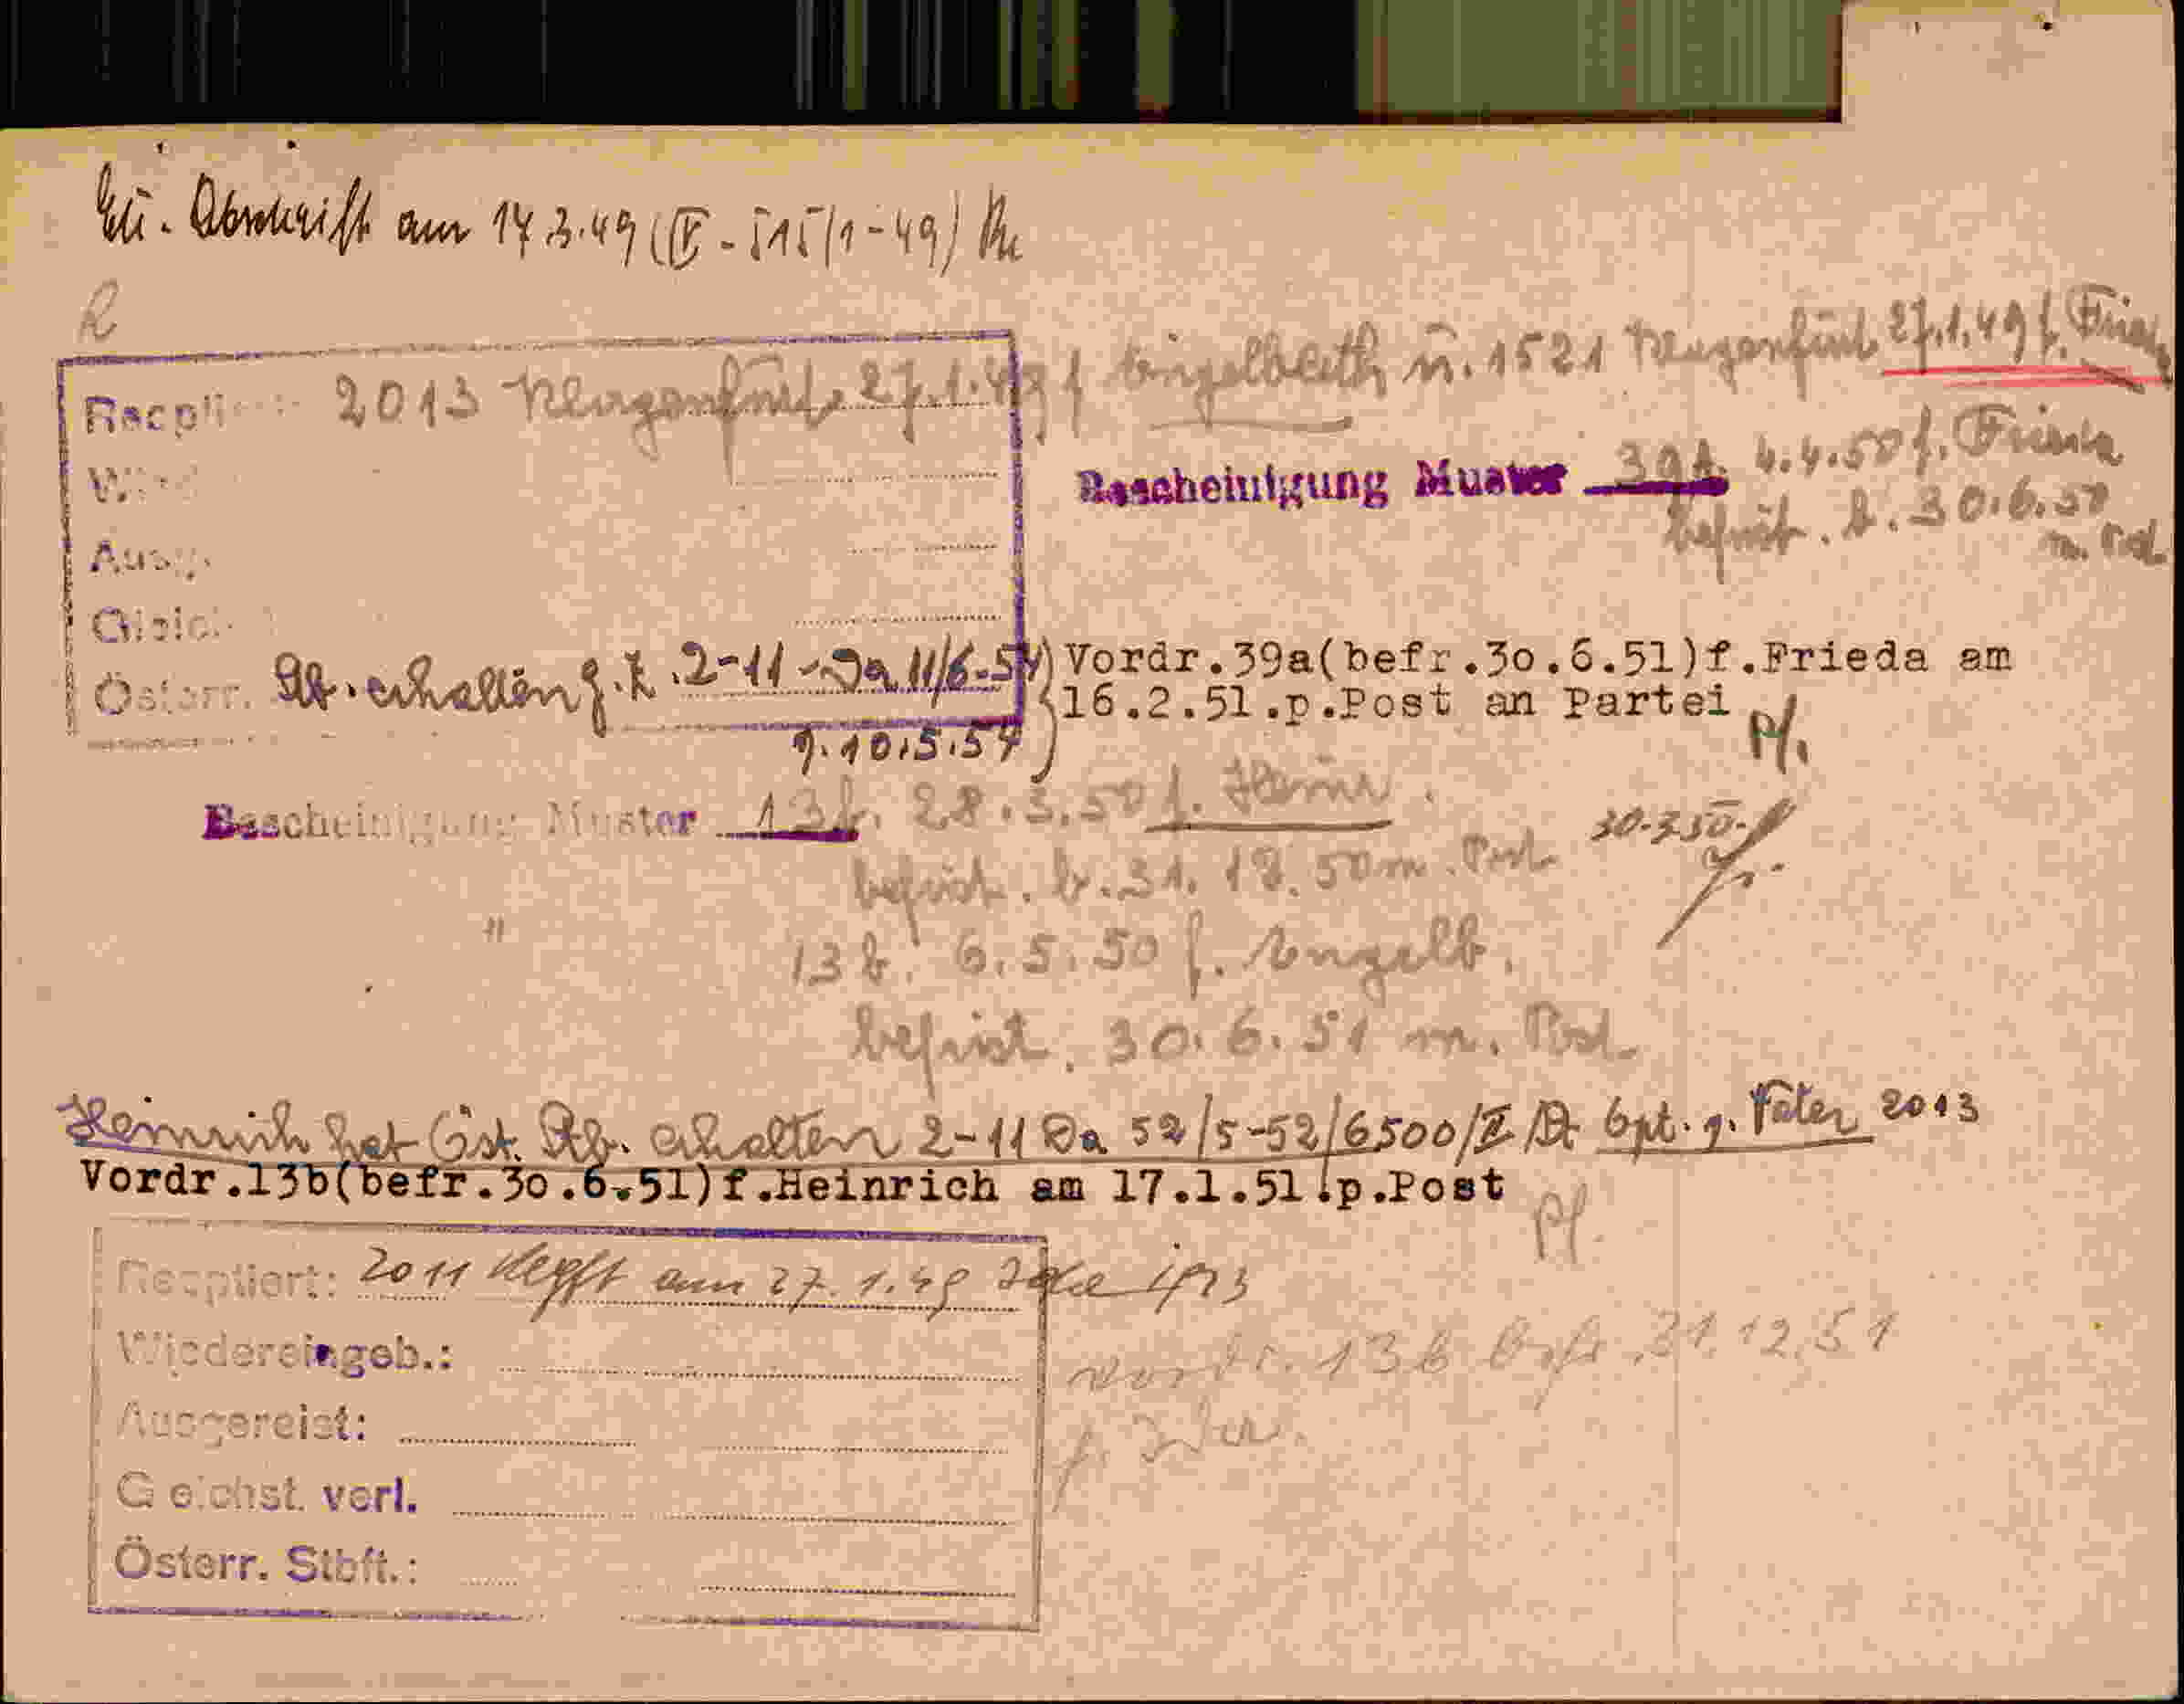 Abschrift am 17.3.49 (IV - 515/1-49)
R
Reoptiert: 2013 Klagenfurt 27.1.49 f. Engelberth u. 1521 Klagenfurt 27.1.49 f. Frieda
Bescheinigung Muster 39a. 4.4.50 f. Frieda
befrist. b. 30.6.50
m. Post
Österr. Stb. erhalten g. Z. 2-11-Da 11/6-54
g. 10.5.54
Vordr.39a(befr.3o.6.51)f.Frieda am
16.2.51.p.Post an Partei
Pf.
Bescheinigung Muster 13b. 28.3.50 f. Heinr.
30.3.50.
befrist. b. 31.12.50 m. Post
" 13b. 6.5.50 f. Engelb.
befrist. 30.6.51 m. Post
Heinrich hat Öst. Stb. erhalten 2-11 Da 52/5-52/6500/II/ Opt. g. Vater 2013
Vordr.13b(befr.3o.6.51)f.Heinrich am 17.1.51.p.Post
Pf.
Reoptiert: 2011 Klgft am 27.1.49
Wiedereingeb.:
Ausgereist:
Gleichst. verl.
Österr. Stbft.:
Vordr. 13b befr. 31.12.51